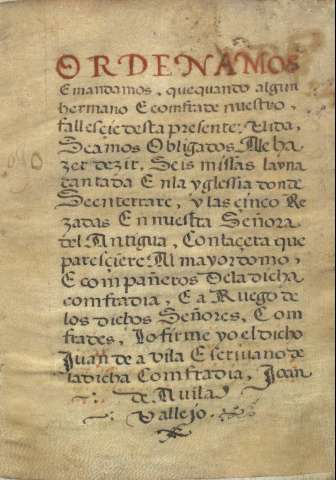 ORDENAMOS
E mandamos, que quando algun
hermano E comfrade nuestro,
fallesçie desta presente Uida,
Seamos Obligados, A le ha
zer dezir, Seis missas la vna
cantada En la yglessia donde
Se enterrare, y las çinco Re
zadas En nuestra Señora
del Antigua, Con la çera que
paresçiere Al mayordomo,
E compañeros De la dicha
comfradia, E a Ruego de
los dichos Señores, Com
frades, Io firme yo el dicho
Juan de a vila Escriuano de
la dicha Comfradia, Joan
de Auila
Vallejo.